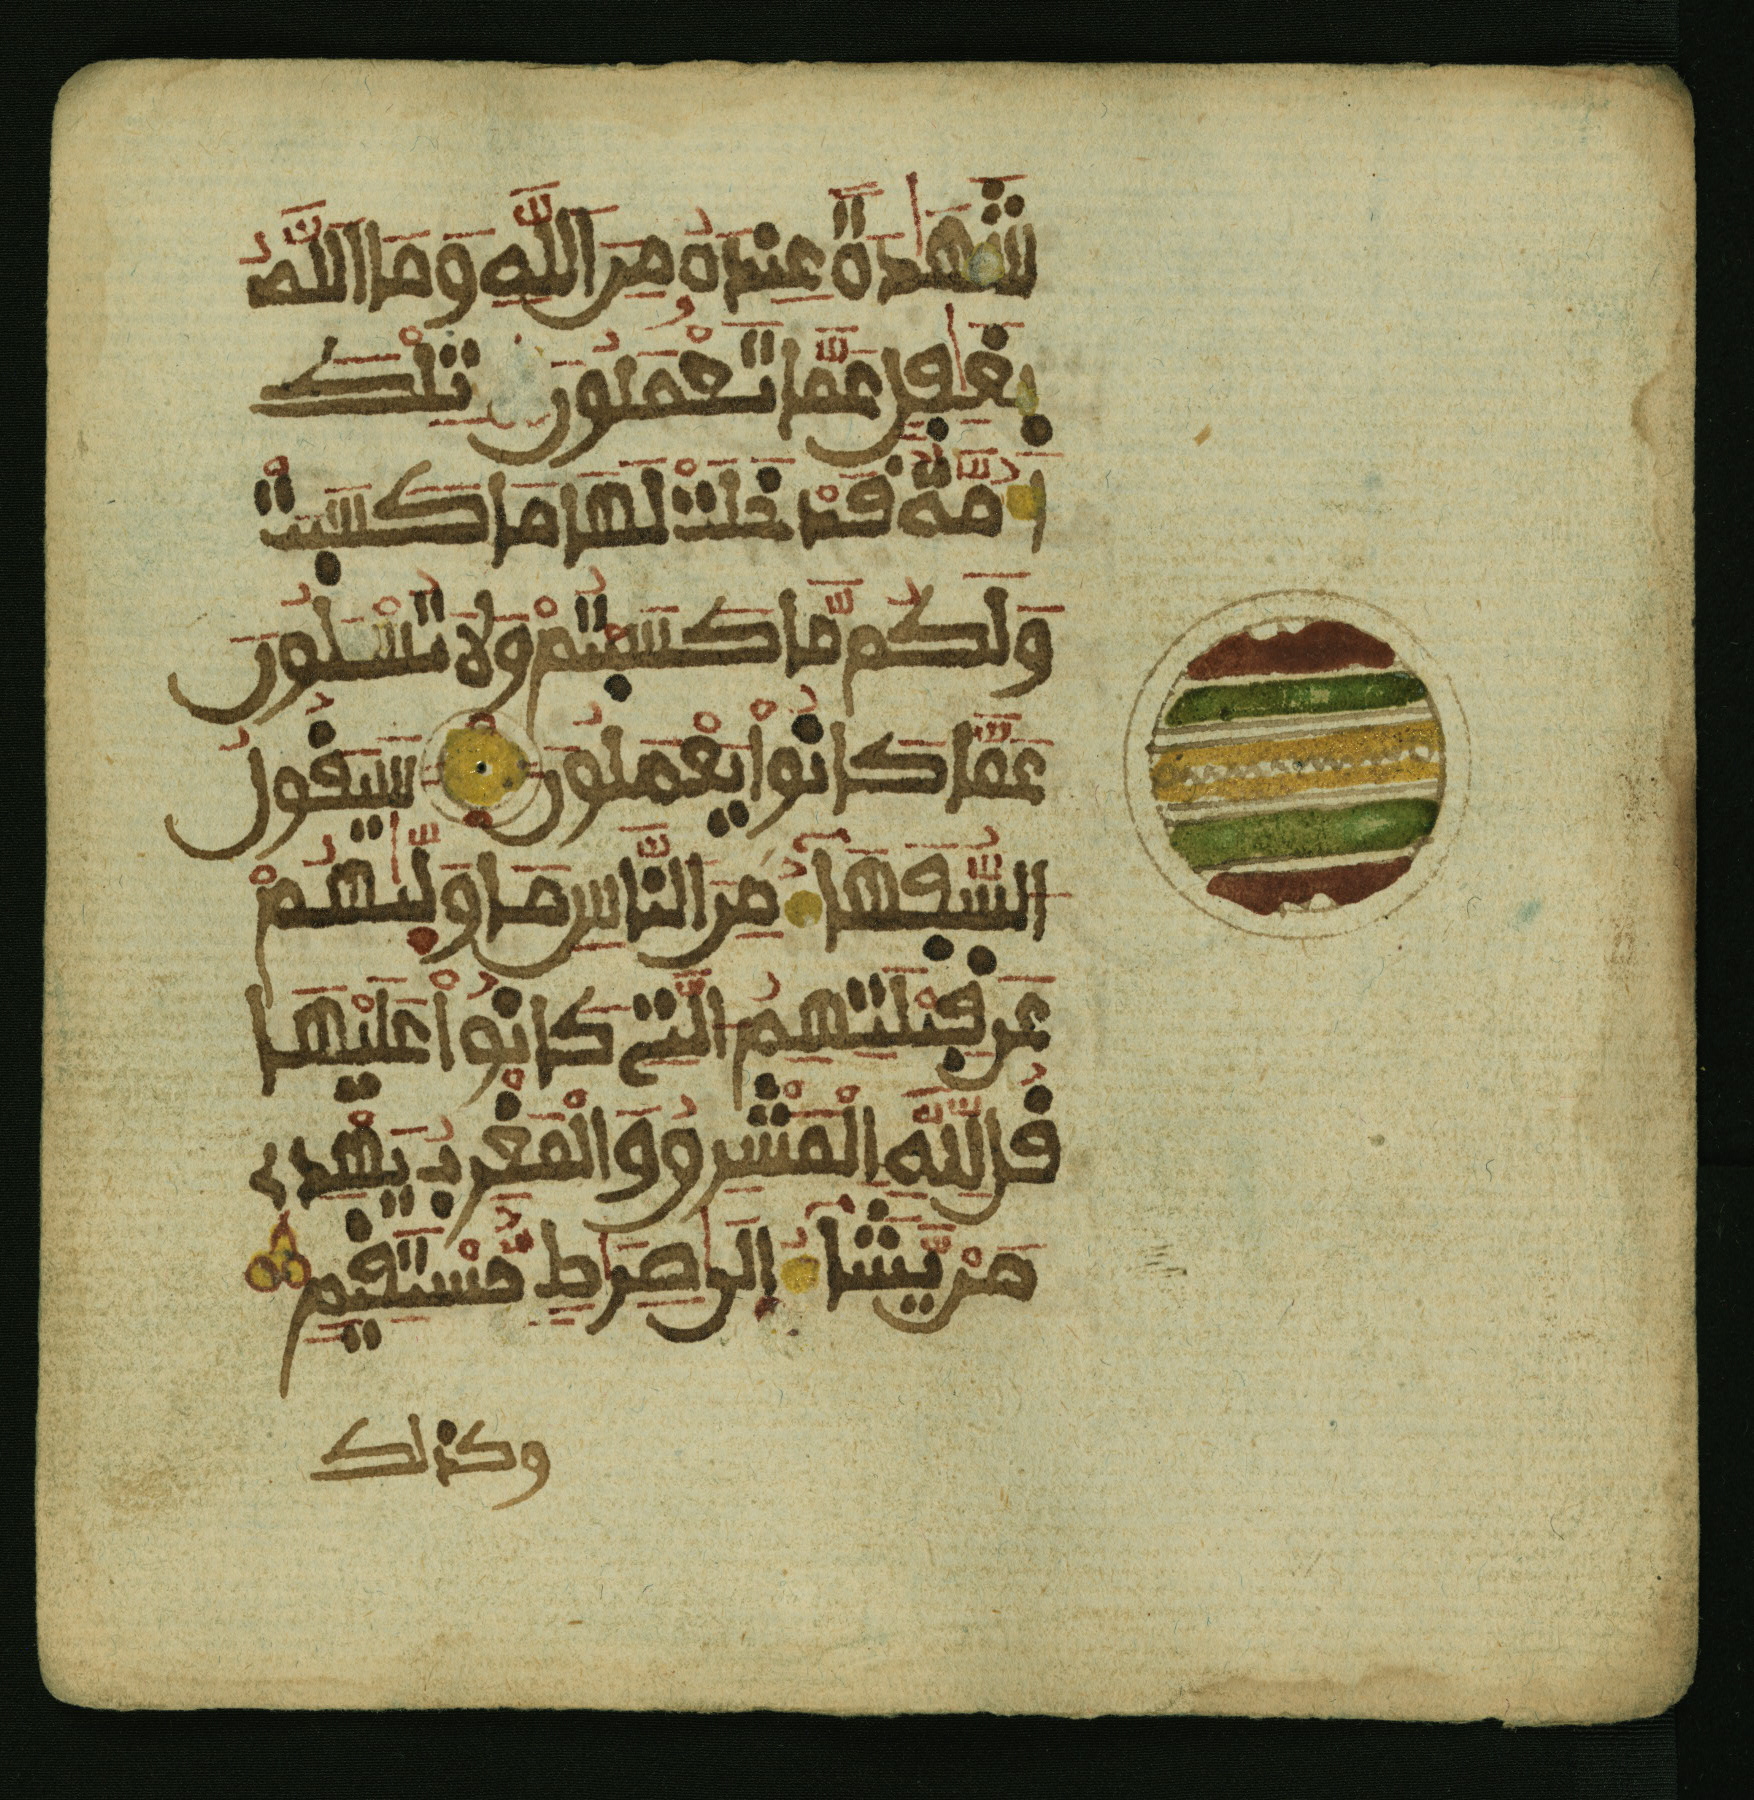 شَهَٰدَةً عِندَهُ مِنَ اللَّهِ وَمَا اللَّهُ
بِغَٰفِلٍ عَمَّا تَعْمَلُونَ تِلْكَ
أُمَّةٌ قَدْ خَلَتْ لَهَا مَا كَسَبَتْ
وَلَكُم مَّا كَسَبْتُمْ وَلَا تُسْـَٔلُونَ
عَمَّا كَانُواْ يَعْمَلُونَ سَيَقُولُ
السُّفَهَآءُ مِنَ النَّاسِ مَا وَلَّىٰهُمْ
عَن قِبْلَتِهِمُ الَّتِے كَانُواْ عَلَيْهَا
قُل لِّلَّهِ الْمَشْرِقُ وَالْمَغْرِبُ يَهْدِے
مَنْ يَّشَآءُ إِلَىٰ صِرَٰطٍ مُّسْتَقِيمٍ
وكذلك